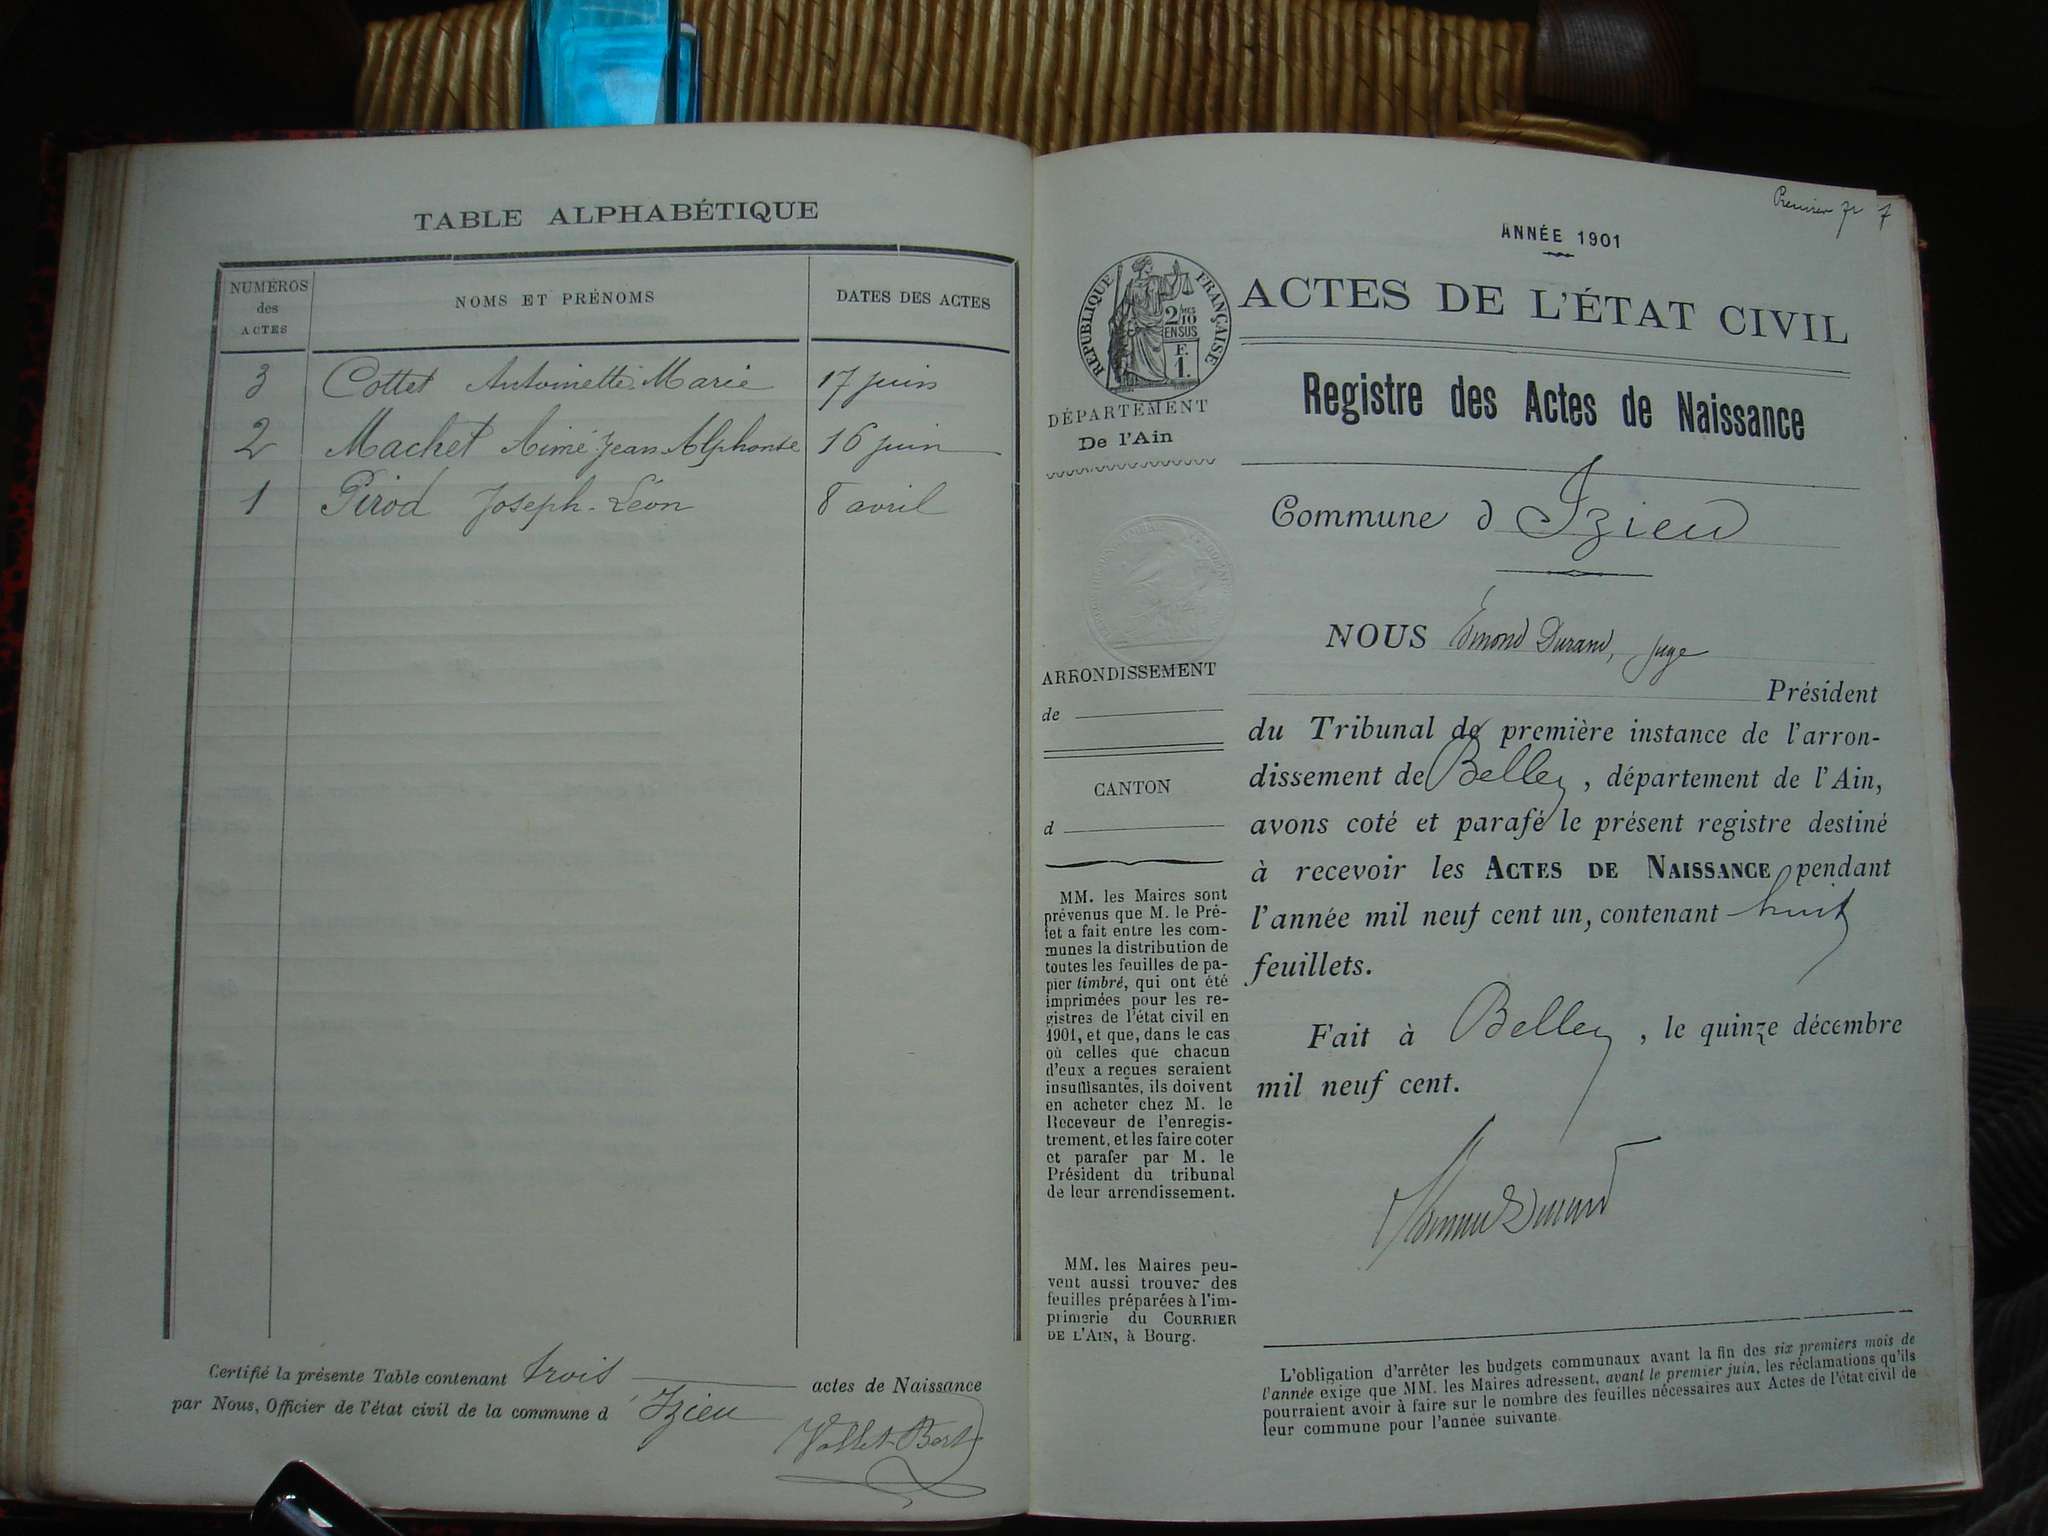 TABLE ALPHABÉTIQUE
NUMÉROS des ACTES
NOMS ET PRÉNOMS
DATES DES ACTES
3 Cottet Antoinette Marie 17 juin
2 Machet Aimé Jean Alphonse 16 juin
1 Pirod Joseph-Léon 8 avril
Certifié la présente Table contenant trois actes de Naissance
par Nous, Officier de l'état civil de la commune d'Izieu
Premier
ANNÉE 1901
ACTES DE L'ÉTAT CIVIL
RÉPUBLIQUE FRANÇAISE
2/10
EN SUS
F.
1.
DÉPARTEMENT
De l'Ain
Registre des Actes de Naissance
Commune d Izieu
NOUS Edmond Durand, juge
Président
du Tribunal de première instance de l'arron-
dissement de Belley, département de l'Ain,
avons coté et parafé le présent registre destiné
à recevoir les ACTES DE NAISSANCE pendant
l'année mil neuf cent un, contenant huit
feuillets.
Fait à Belley, le quinze décembre
mil neuf cent.
ARRONDISSEMENT
de
CANTON
d
MM. les Maires sont
prévenus que M. le Pré-
fet a fait entre les com-
munes la distribution de
toutes les feuilles de pa-
pier timbré, qui ont été
imprimées pour les re-
gistres de l'état civil en
1901, et que, dans le cas
où celles que chacun
d'eux a reçues seraient
insuffisantes, ils doivent
en acheter chez M. le
Receveur de l'enregis-
trement, et les faire coter
et parafer par M. le
Président du tribunal
de leur arrondissement.
MM. les Maires peu-
vent aussi trouver des
feuilles préparées à l'im-
primerie du COURRIER
DE L'AIN, à Bourg.
L'obligation d'arrêter les budgets communaux avant la fin des six premiers mois de
l'année exige que MM. les Maires adressent, avant le premier juin, les réclamations qu'ils
pourraient avoir à faire sur le nombre des feuilles nécessaires aux Actes de l'état civil de
leur commune pour l'année suivante.